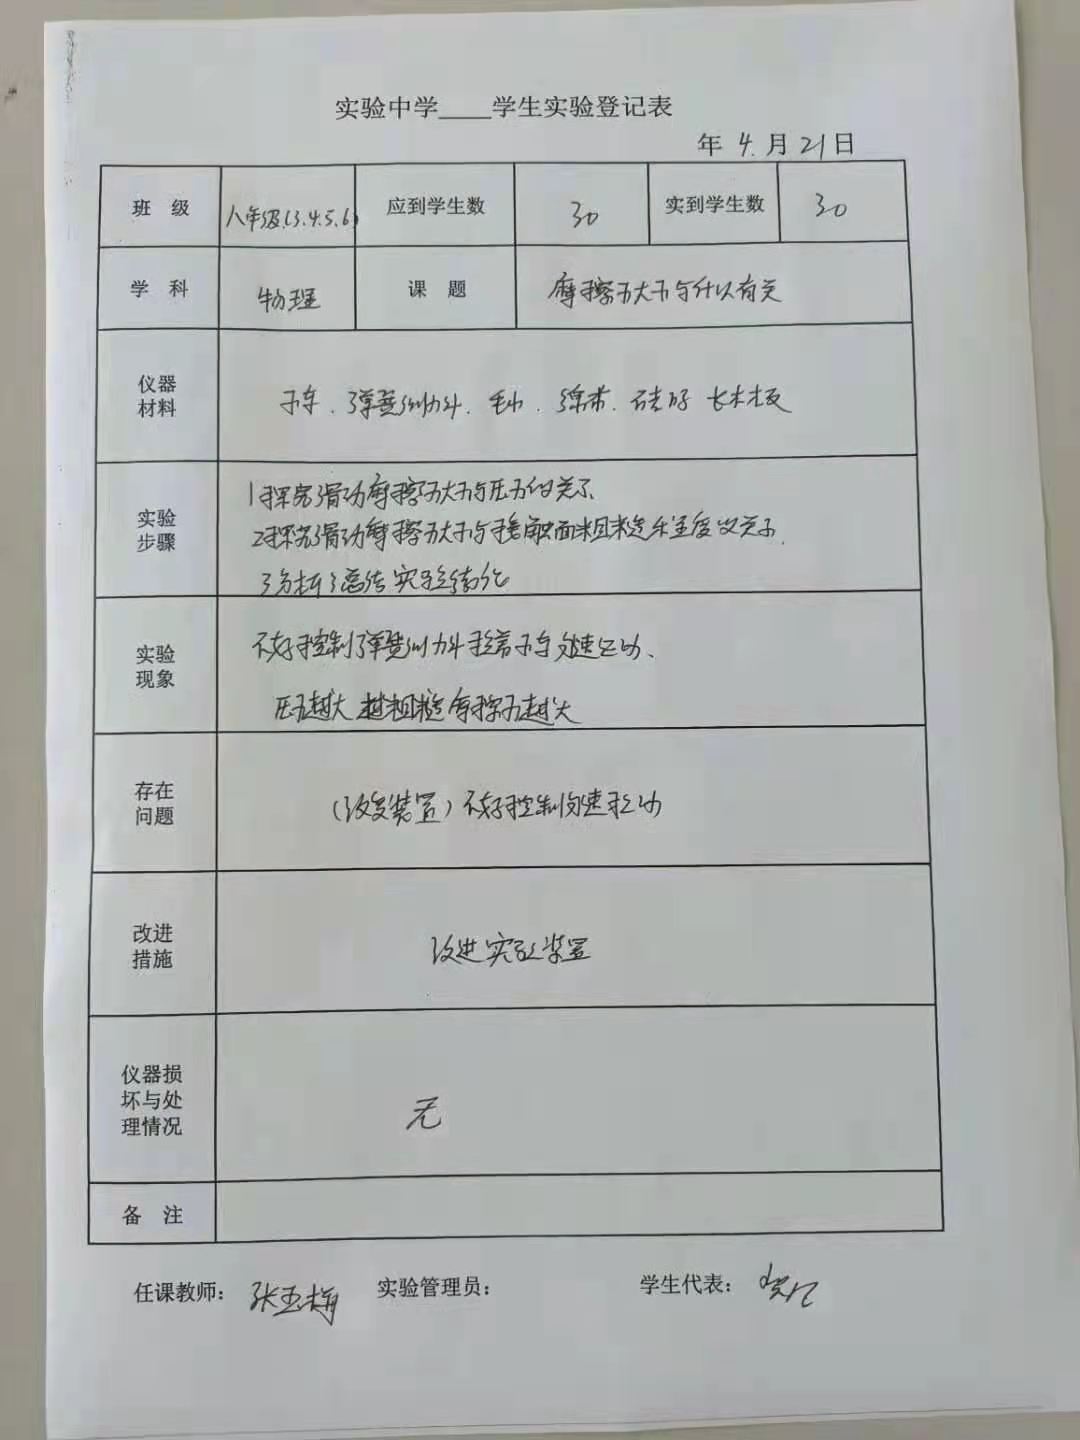 实验中学____学生实验登记表
年 4. 月 21 日
班 级 八年级(3.4.5.6) 应到学生数 30 实到学生数 30
学 科 物理 课 题 摩擦力大小与什么有关
仪器
材料
小车. 弹簧测力计. 毛巾. 棉布. 砝码 长木板
实验
步骤
1探究滑动摩擦力大小与压力的关系
2探究滑动摩擦力大小与接触面粗糙程度的关系.
3分析总结实验结论
实验
现象
不好控制弹簧测力计拉着小车匀速运动、
压力越大 越粗糙 摩擦力越大
存在
问题
(改变装置) 不好控制匀速运动
改进
措施
改进实验装置
仪器损
坏与处
理情况
无
备 注
任课教师： 张玉梅 实验管理员： 学生代表：